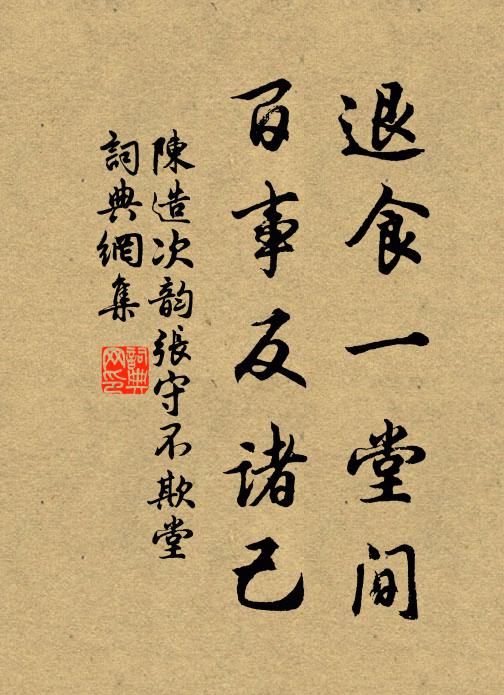 退食一堂间
百事反诸己
陳造次韵張守不欺堂
詞典網集
詞典
网印